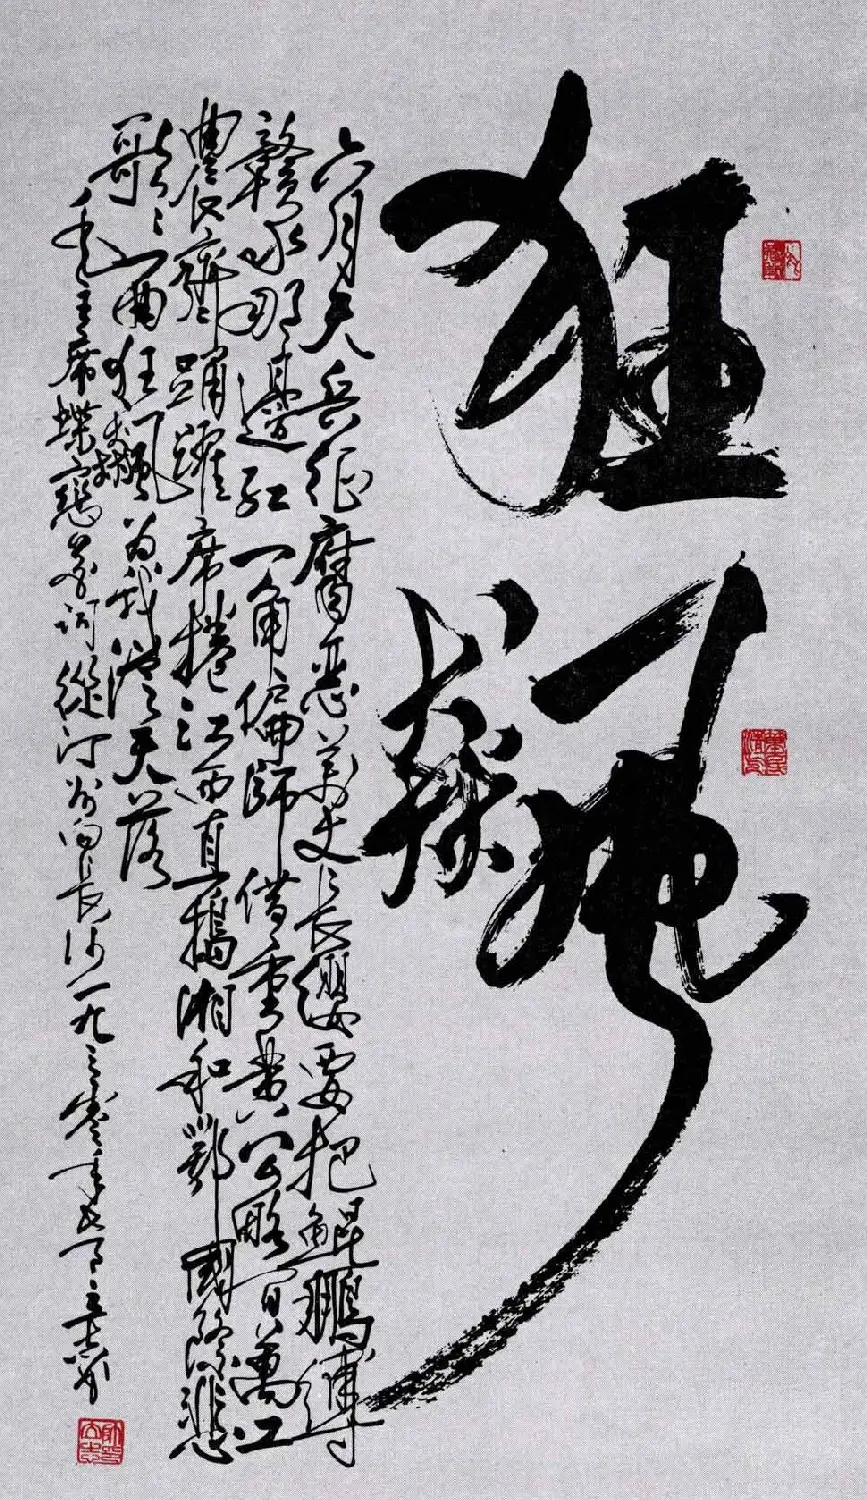 狂飆
六月天兵征腐惡萬丈長纓要把鯤鵬縛
贛水那邊紅一角偏師借重黄公略百萬工
農齊踴躍席捲江西直搗湘和鄂國際悲
歌〻一曲狂飆為我從天落
毛主席蝶戀花詞從汀州向長沙一九三零年七月